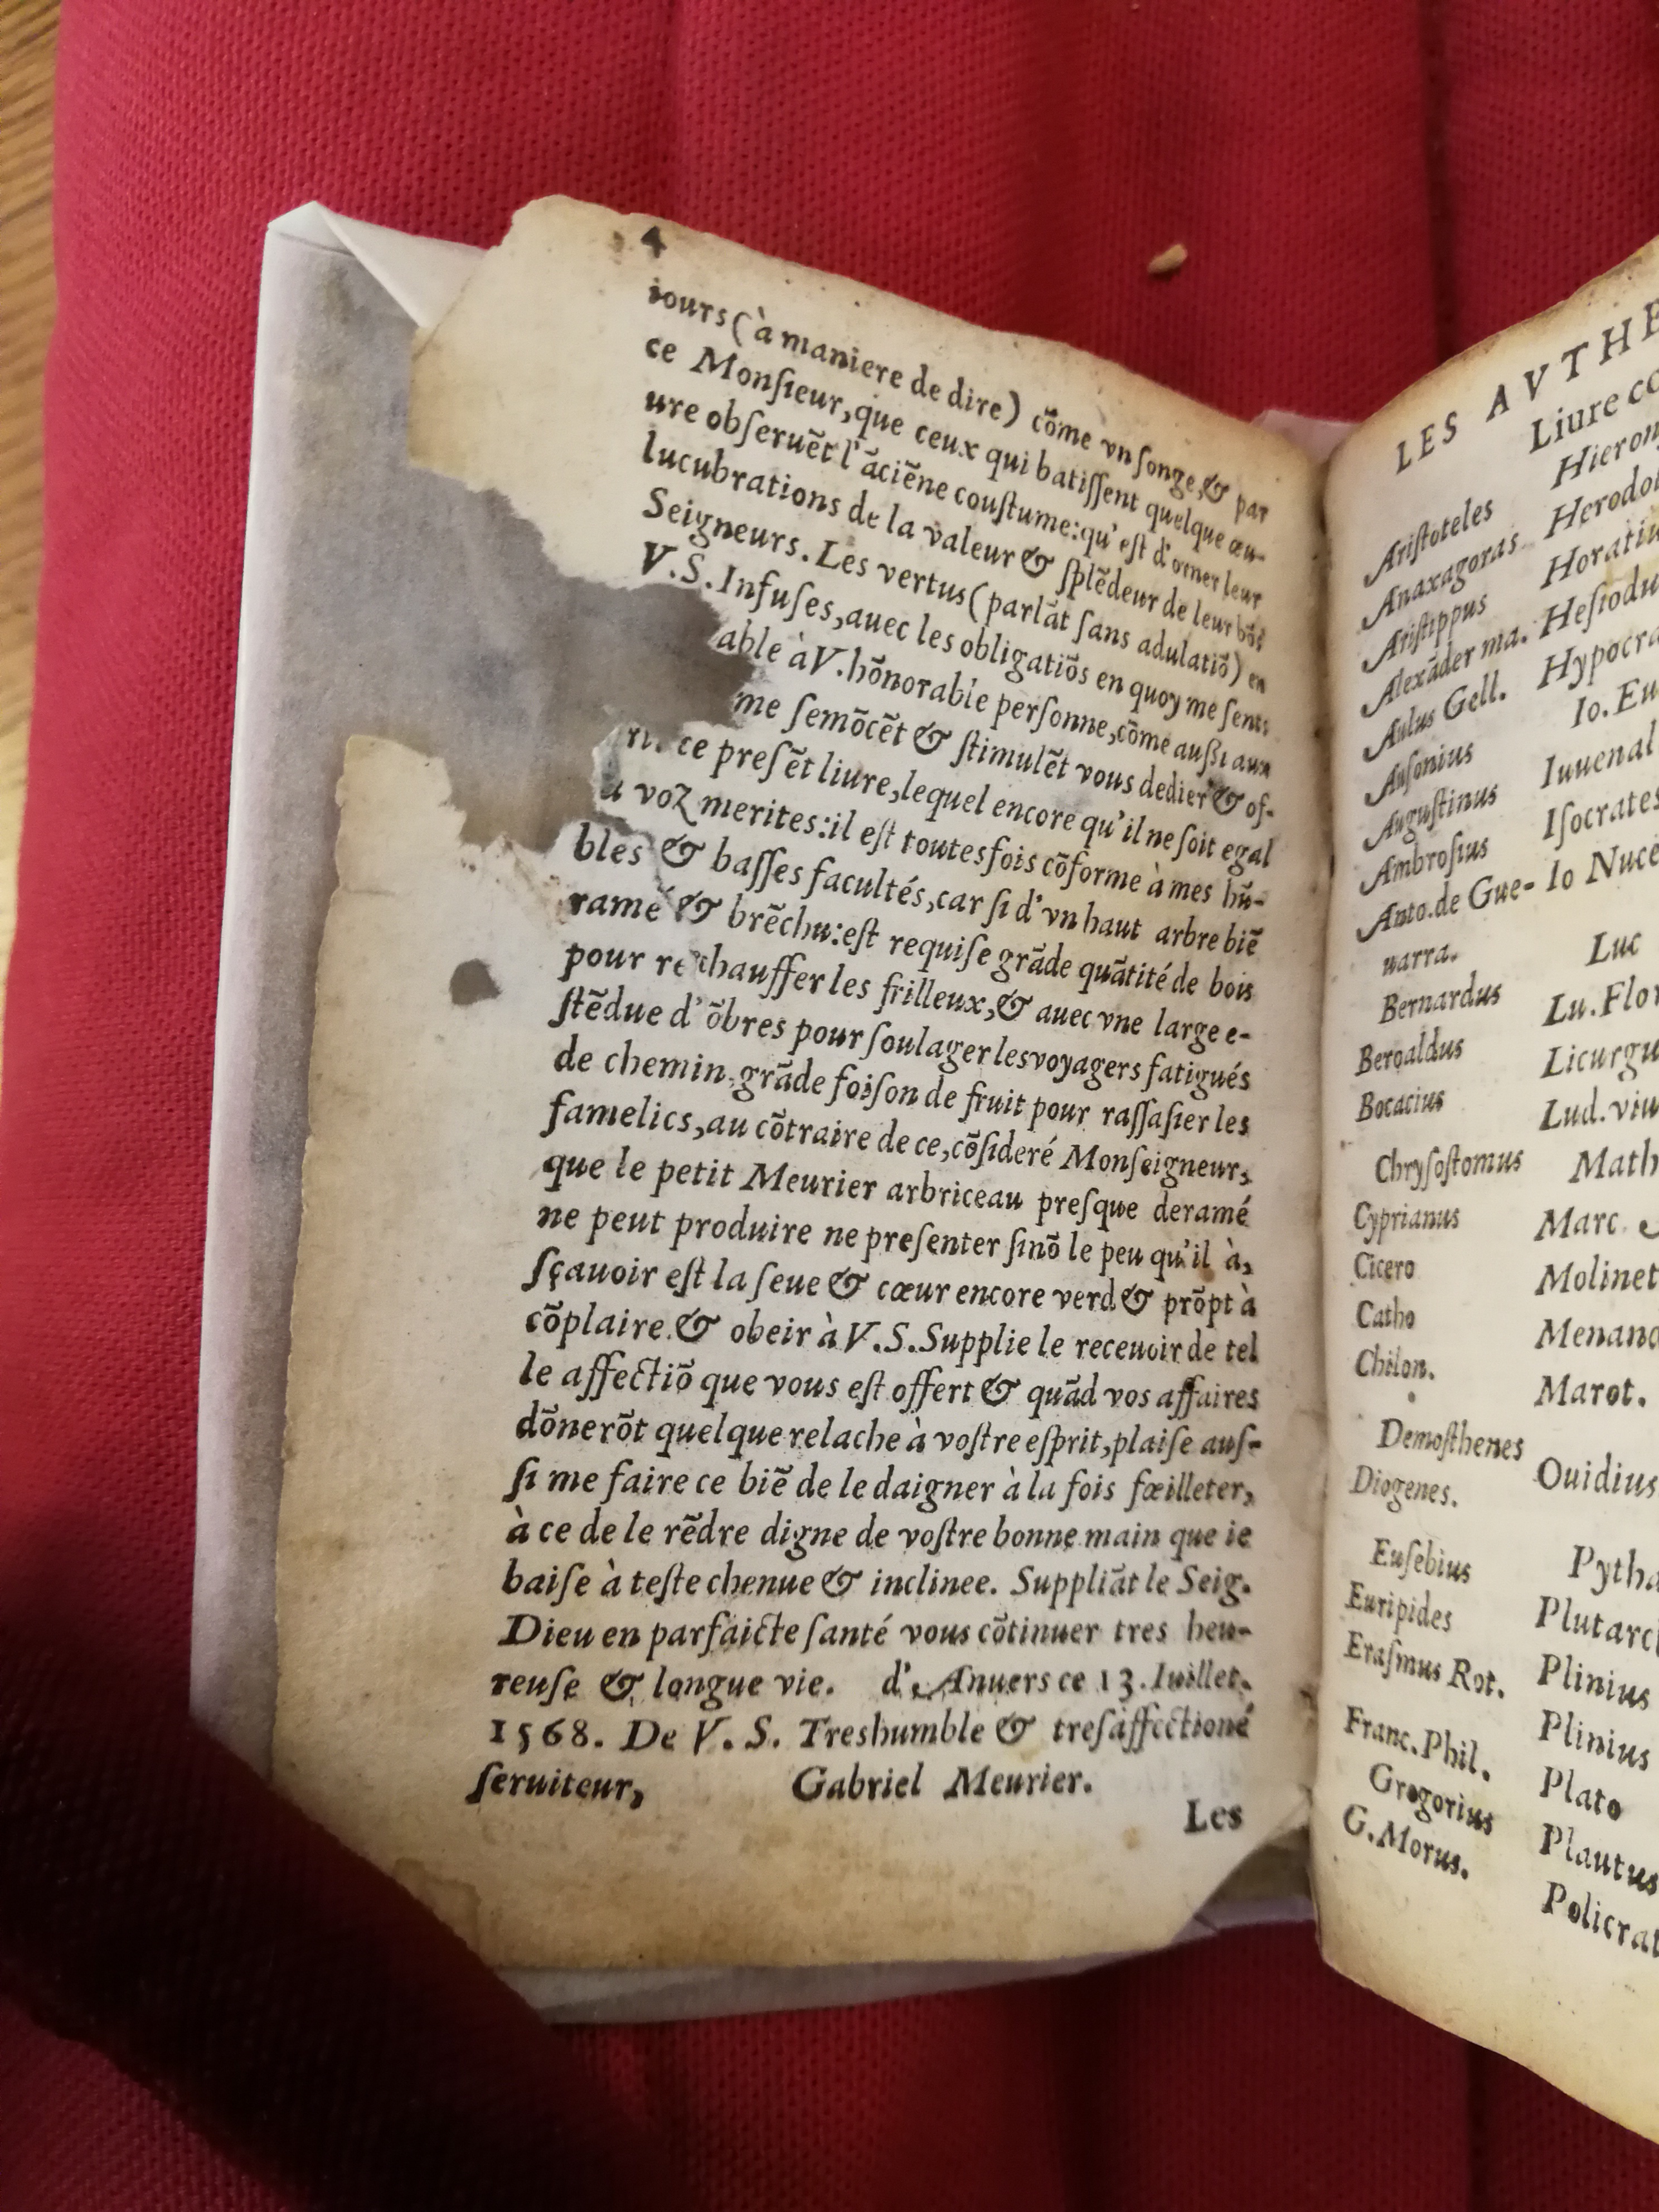 4
iours (à maniere de dire) cõme vn songe, & par
ce Monsieur, que ceux qui batissent quelque œu-
ure obseruẽt l'ãciẽne coustume: qu'est d'orner leur
lucubrations de la valeur & splẽdeur de leur bõs
Seigneurs. Les vertus (parlãt sans adulatiõ) en
V.S. Infuses, auec les obligatiõs en quoy me sents
able à V. hõnorable personne, cõme aussi aux
me semõcẽt & stimulẽt vous dedier & of-
ce presẽt liure, lequel encore qu'il ne soit egal
a voz merites: il est toutesfois cõforme à mes hũ-
bles & basses facultés, car si d'vn haut arbre biẽ
ramé & brẽchu: est requise grãde quãtité de bois
pour rechauffer les frilleux, & auec vne large e-
stẽdue d'õbres pour soulager les voyagers fatigués
de chemin, grãde foison de fruit pour rassasier les
famelics, au cõtraire de ce, cõsideré Monseigneur,
que le petit Meurier arbriceau presque deramé
ne peut produire ne presenter sinõ le peu qu'il à,
sçauoir est la seue & cœur encore verd & prõpt à
cõplaire & obeir à V.S. Supplie le receuoir de tel
le affectiõ que vous est offert & quãd vos affaires
dõnerõt quelque relache à vostre esprit, plaise aus-
si me faire ce biẽ de le daigner à la fois fœilleter,
à ce de le rẽdre digne de vostre bonne main que ie
baise à teste chenue & inclinee. Suppliãt le Seig.
Dieu en parfaicte santé vous cõtinuer tres heu-
reuse & longue vie. d'Anuers ce 13. Iuillet.
1568. De V. S. Treshumble & tresaffectioné
seruiteur, Gabriel Meurier.
Les
LES AVTHE
Liure co
Aristoteles
Anaxagoras
Aristippus
Alexãder ma.
Aulus Gell.
Ausonius
Augustinus
Ambrosius
Anto. de Gue-
uarra.
Bernardus
Beroaldus
Bocacius
Chrysostomus
Cyprianus
Cicero
Catho
Chilon.
Demosthenes
Diogenes.
Eusebius
Euripides
Erasmus Rot.
Franc. Phil.
Gregorius
G. Morus.
Hieron
Herodot
Horatiu
Hesiodu
Hypocra
Io. Eu
Iuuenal
Isocrates
Io Nuce
Luc
Lu. Flor
Licurgu
Lud. viu
Math
Marc.
Molinet
Menand
Marot.
Ouidius
Pytha
Plutarc
Plinius
Plinius
Plato
Plautus
Policrat